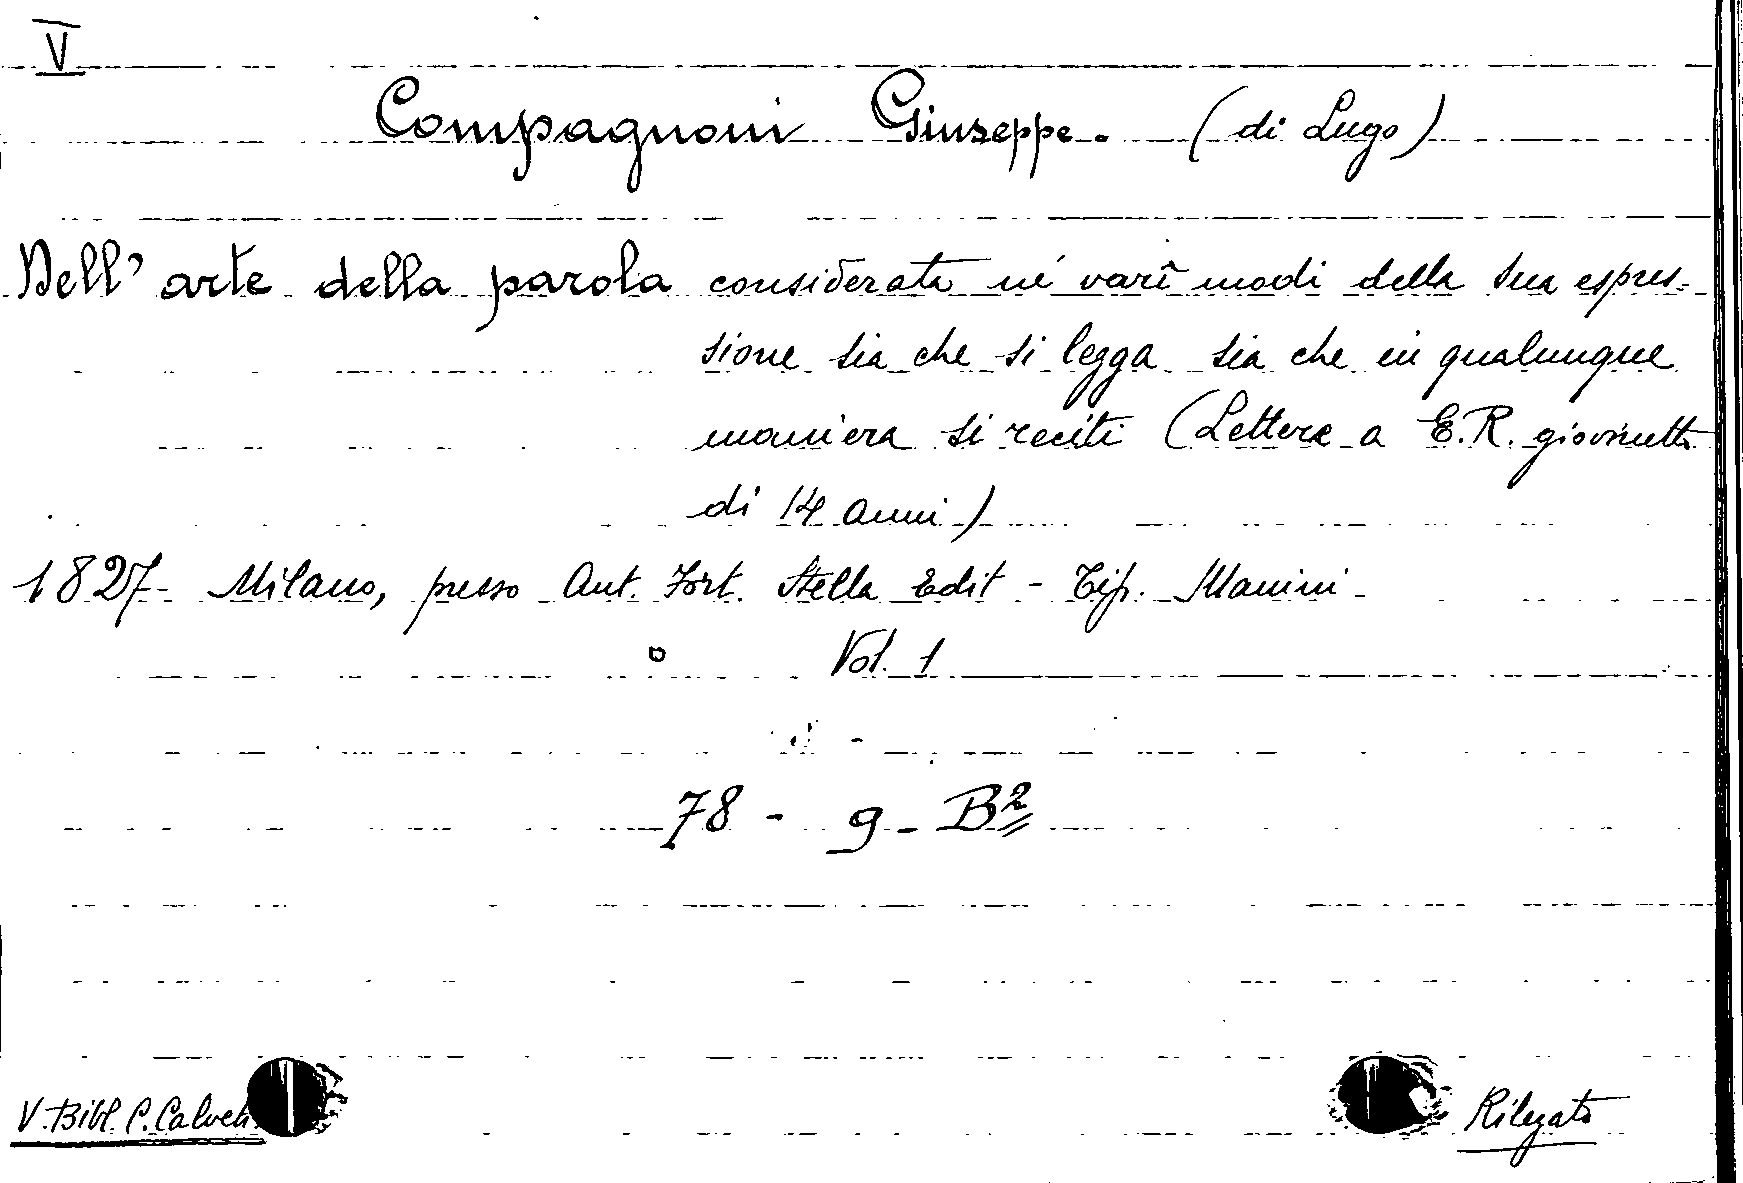 V
Compagnoni Giuseppe. (di Lugo)
Dell' arte della parola considerata né varî modi della sua espres=
sione sia che si legga sia che in qualunque
maniera si reciti (Lettere a E.R. giovinetto
di 14 anni)
1827 - Milano, presso Ant. Fort. Stella Edit - Tip. Manini -
Vol. 1
78 - 9 - B²
V. Bibl. C. Calveti
Rilegato